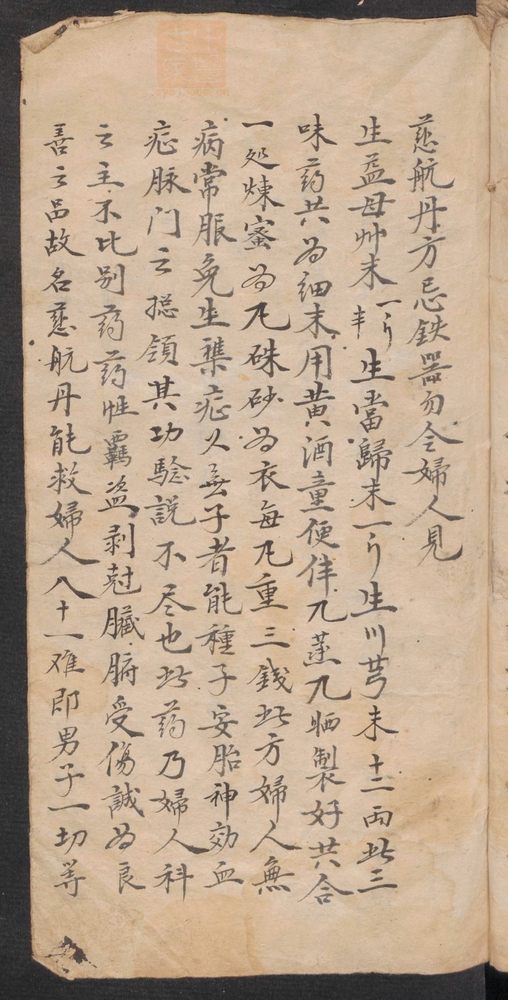 慈航丹方忌鉄器勿令婦人見
生益母艸末一斤半生當歸末一斤生川芎末十二两此三
味药共为细末用黄酒童便伴九蒸九晒製好共合
一処煉蜜为凡硃砂为衣每凡重三錢此方婦人無
病常服免生襍症久無子者能種子安胎神効血
症脉门之捴領其功騐説不尽也此药乃婦人科
之主不比别药药性覇盗剥尅臓腑受傷誠为良
善之品故名慈航丹能救婦人八十一难即男子一切等